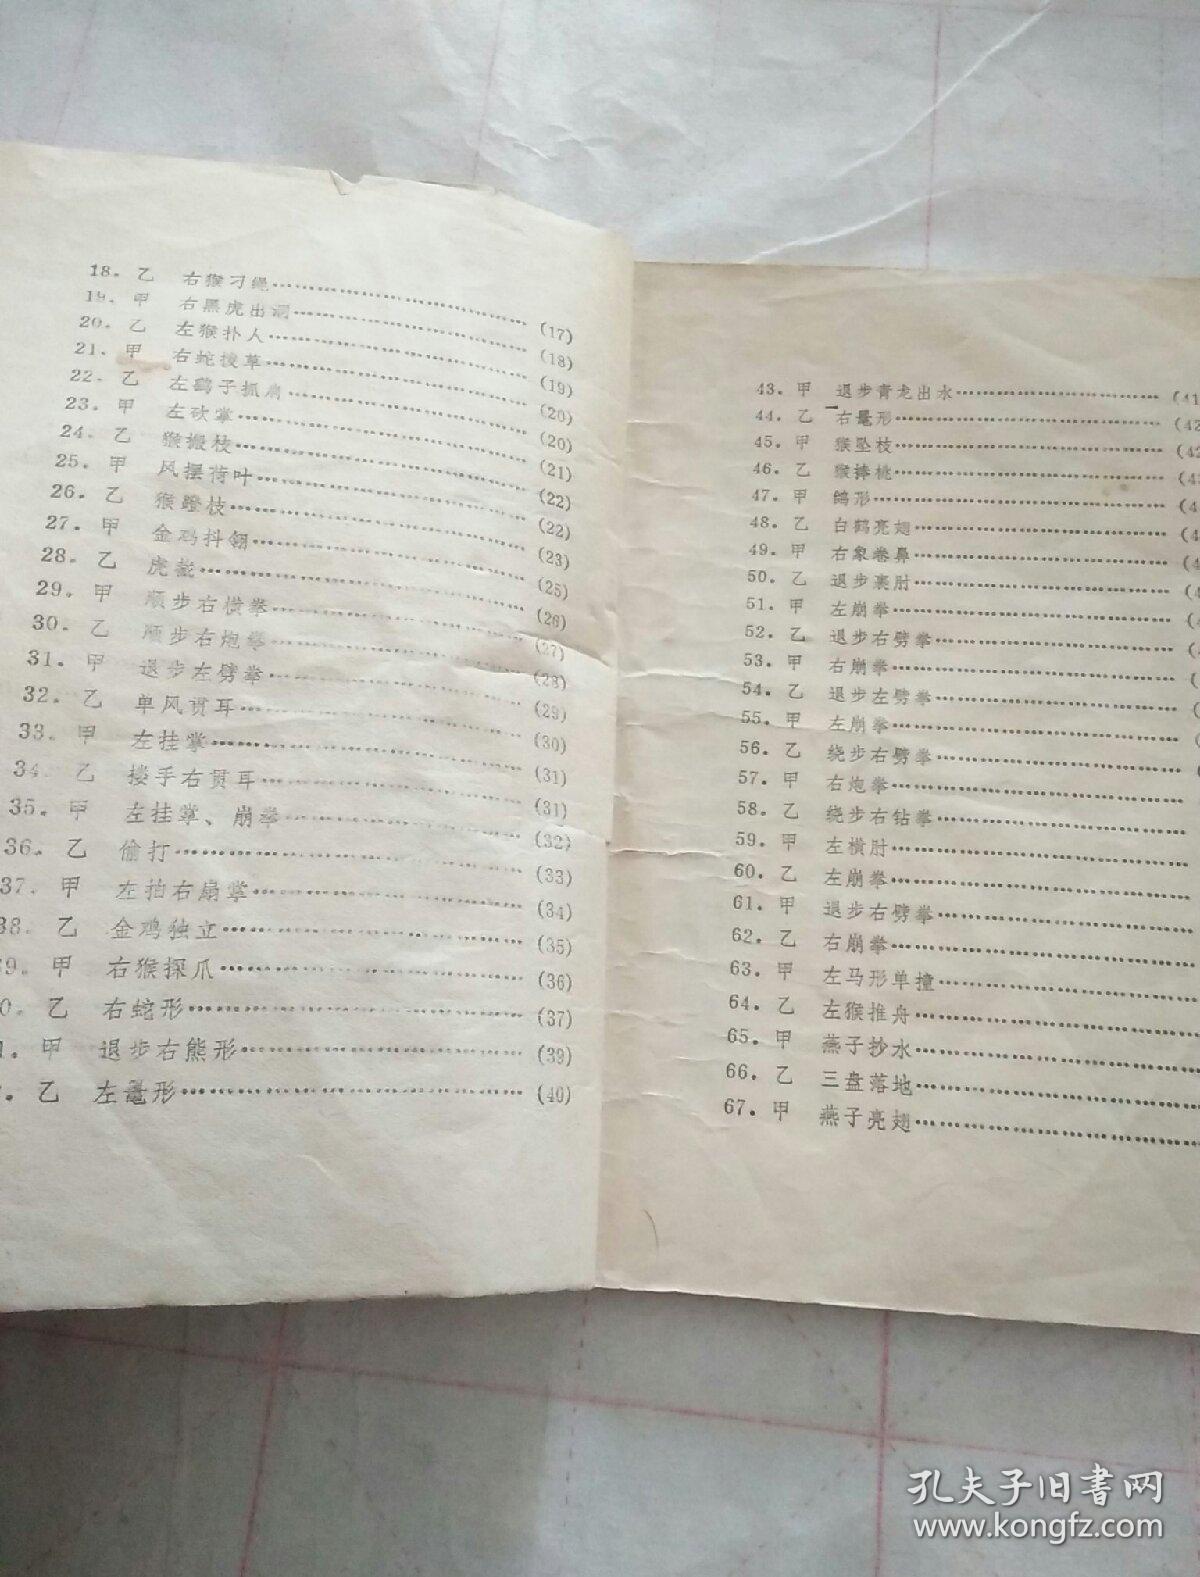 18. 乙 右猴刁绳……(17)
19. 甲 右黑虎出洞……(18)
20. 乙 左猴扑人……(19)
21. 甲 右蛇拨草……(20)
22. 乙 左鹞子抓肩……(20)
23. 甲 左砍掌……(21)
24. 乙 猴搬枝……(22)
25. 甲 风摆荷叶……(22)
26. 乙 猴蹬枝……(23)
27. 甲 金鸡抖翎……(25)
28. 乙 虎截……(26)
29. 甲 顺步右横拳……(27)
30. 乙 顺步右炮拳……(28)
31. 甲 退步左劈拳……(29)
32. 乙 单风贯耳……(30)
33. 甲 左挂掌……(31)
34. 乙 搂手右贯耳……(31)
35. 甲 左挂掌、崩拳……(32)
36. 乙 偷打……(33)
37. 甲 左拍右扇掌……(34)
38. 乙 金鸡独立……(35)
39. 甲 右猴探爪……(36)
0. 乙 右蛇形……(37)
1. 甲 退步右熊形……(39)
. 乙 左鼍形……(40)
43. 甲 退步青龙出水……(41
44. 乙 右鼍形……(42
45. 甲 猴坠枝……(42
46. 乙 猴捧桃……(43
47. 甲 鸽形……(4
48. 乙 白鹤亮翅……(4
49. 甲 右象卷鼻……(4
50. 乙 退步裹肘……(4
51. 甲 左崩拳……(4
52. 乙 退步右劈拳……(4
53. 甲 右崩拳……(
54. 乙 退步左劈拳……(
55. 甲 左崩拳……(
56. 乙 绕步右劈拳……(
57. 甲 右炮拳……
58. 乙 绕步右钻拳……
59. 甲 左横肘……
60. 乙 左崩拳……
61. 甲 退步右劈拳……
62. 乙 右崩拳……
63. 甲 左马形单撞……
64. 乙 左猴推舟……
65. 甲 燕子抄水……
66. 乙 三盘落地……
67. 甲 燕子亮翅……
孔夫子旧书网
www.kongfz.com